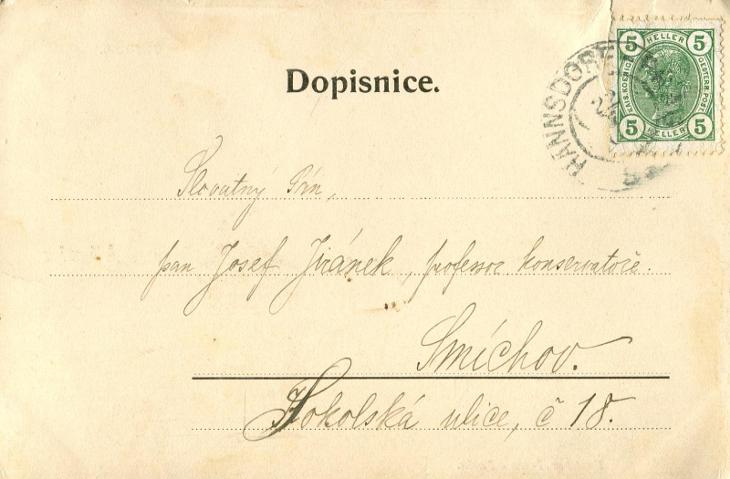 Dopisnice.
5 HELLER 5
KAIS. KOENIGL. OESTERR. POST
5 HELLER 5
HANNSDORF
Slovutný Pán,
pan Josef Jiránek, professor konservatoře.
Smíchov.
Sokolská ulice, č 18.